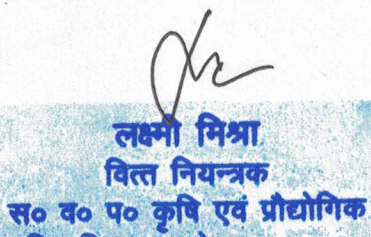 लक्ष्मी मिश्रा
वित्त नियन्त्रक
स० व० प० कृषि एवं प्रौद्योगिक